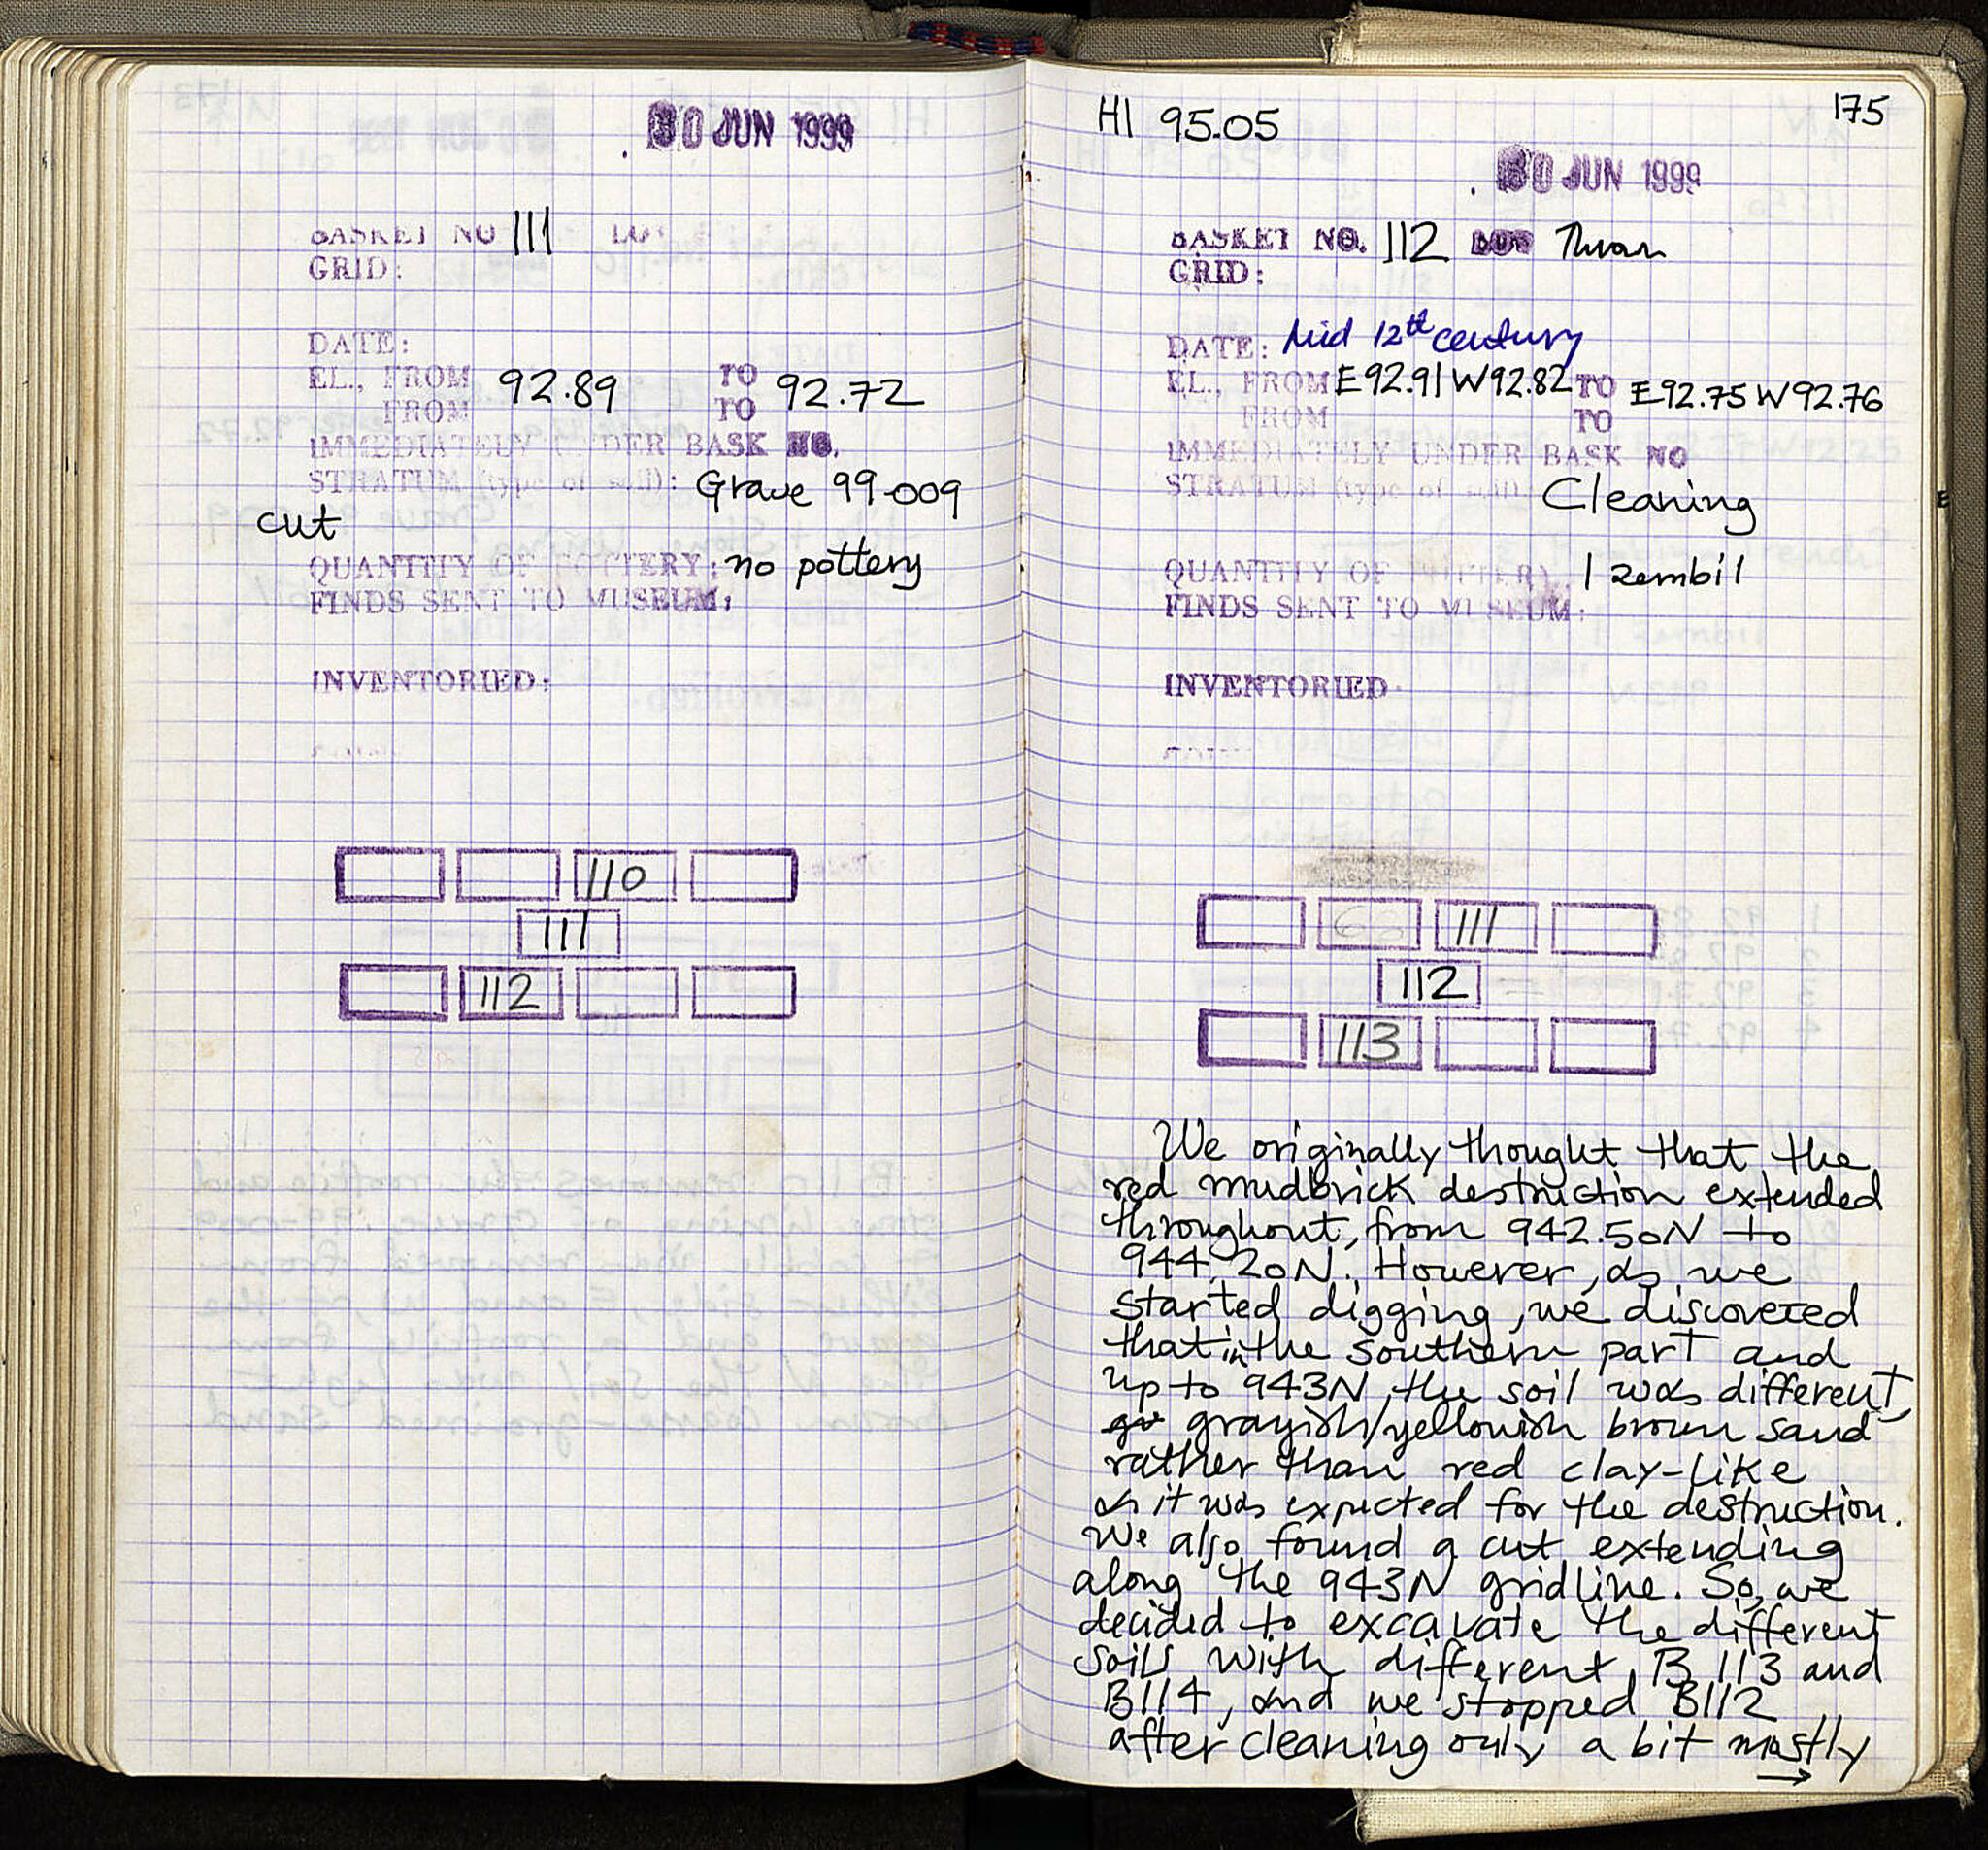 30 JUN 1999
BASKET NO 111 LOT
GRID:
DATE:
EL., FROM 92.89 TO 92.72
FROM TO
IMMEDIATELY UNDER BASK NO.
STRATUM (type of soil): Grave 99-009
cut
QUANTITY OF POTTERY: no pottery
FINDS SENT TO MUSEUM:
INVENTORIED:
110
111
112
H1 95.05
175
30 JUN 1999
BASKET NO. 112 LOT
GRID:
DATE: Mid 12th century
EL., FROM E92.91 W92.82 TO E92.75 W92.76
FROM TO
IMMEDIATELY UNDER BASK NO
STRATUM (type of soil): Cleaning
QUANTITY OF POTTERY: 1 zembil
FINDS SENT TO MUSEUM:
INVENTORIED
111
112
113
We originally thought that the
red mudbrick destruction extended
throughout, from 942.50N to
944.20N. However, as we
started digging, we discovered
that in the southern part and
up to 943N, the soil was different,
gr grayish/yellowish brown sand
rather than red clay-like
as it was expected for the destruction.
We also found a cut extending
along the 943N gridline. So, we
decided to excavate the different
soils with different B113 and
B114, and we stopped B112
after cleaning only a bit mostly
→